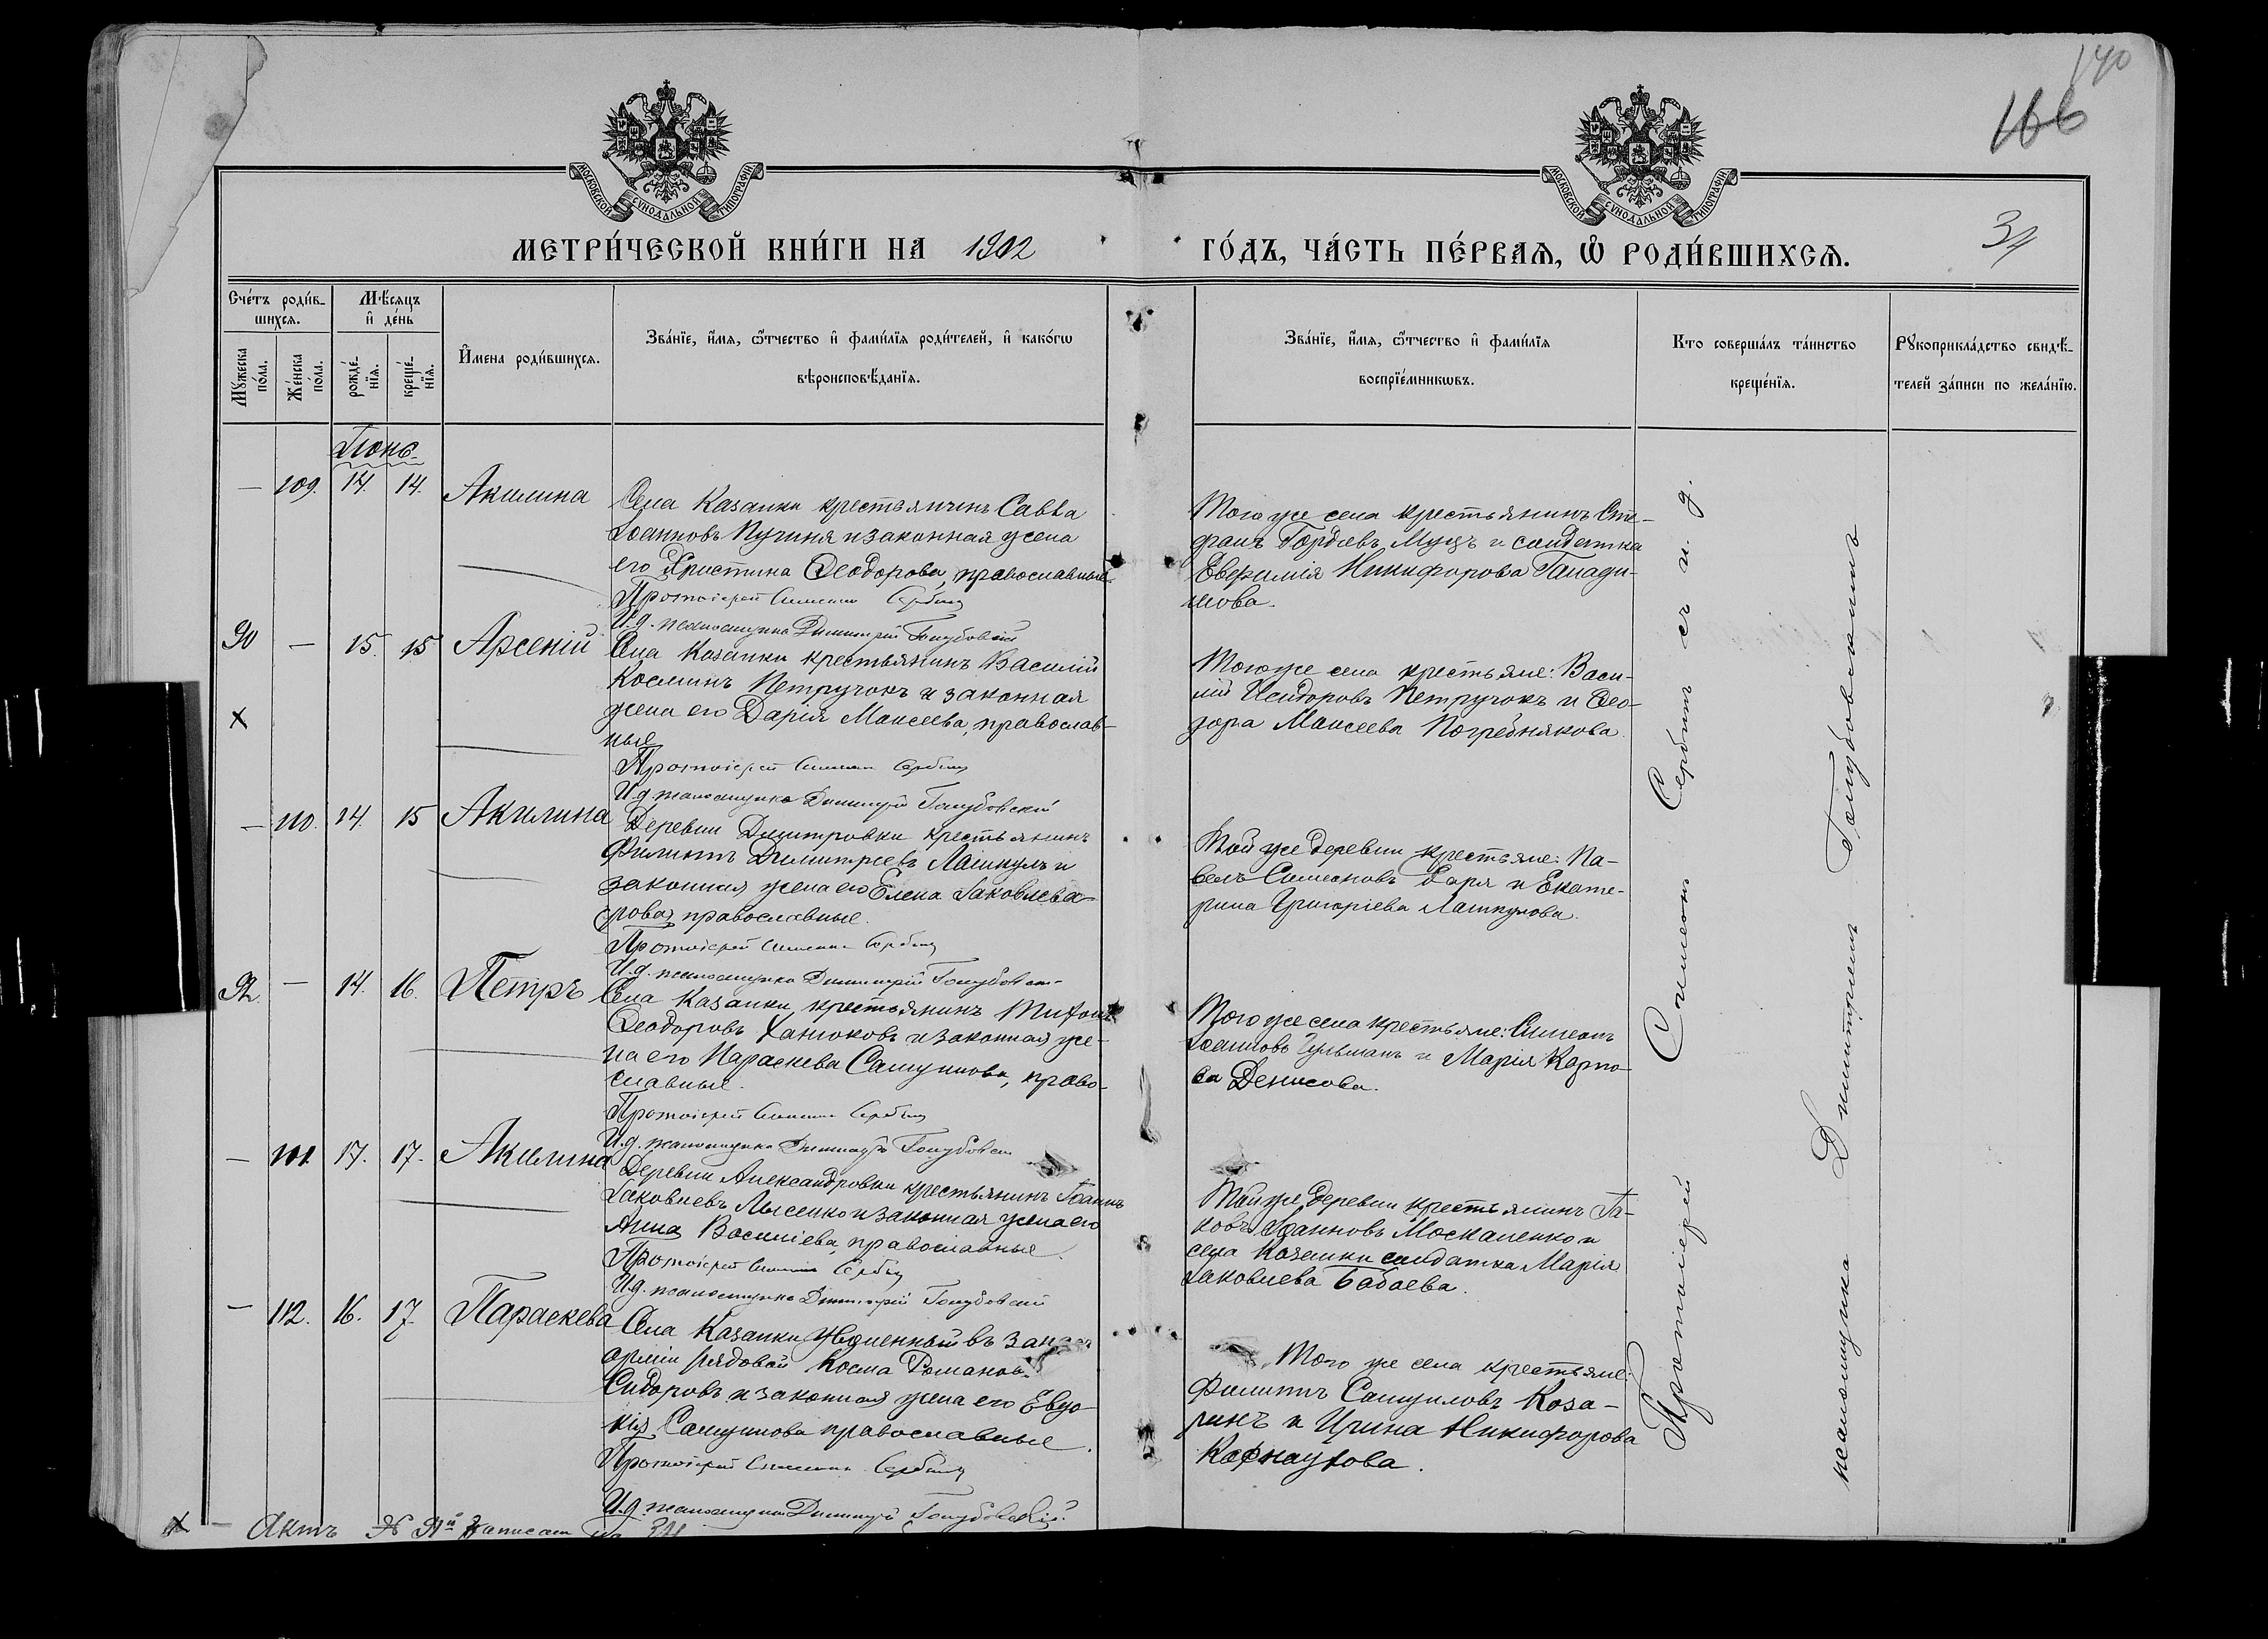 140
166
34
МОСКОВСКОЙ СУНОДАЛЬНОЙ ТИПОГРАФІИ
МОСКОВСКОЙ СУНОДАЛЬНОЙ ТИПОГРАФІИ
МЕТРИ́ЧЕСКОЙ КНИ́ГИ НА 1902
ГО́ДЪ, ЧА́СТЬ ПЕ́РВАѦ, Ѡ҆ РОДИ́ВШИХСѦ.
Сче́тъ роди́в-
шихсѧ.
Мѣ́сѧцъ
и҆ де́нь
Мꙋ́жеска
по́ла.
Же́нска
по́ла.
рожде́-
нїѧ.
креще́-
нїѧ.
И҆мена роди́вшихсѧ.
Зва́нїе, и҆́мѧ, ѻ҆́тчество и҆ фами́лїѧ роди́телей, и҆ како́гѡ
вѣроисповѣ́данїѧ.
Зва́нїе, и҆́мѧ, ѻ҆́тчество и҆ фами́лїѧ
воспрїе́мникѡвъ.
Кто соверша́лъ та́инство
креще́нїѧ.
Рꙋкоприкла́дство свидѣ́-
телей за́писи по жела́нїю.
Іюнь
— 109. 14. 14. Акилина
Села Казанки крестьянинъ Савва
Іоанновъ Пугиня и законная жена
его Христина Ѳеодорова, православные
Протоіерей Симеонъ Сербинъ
И.д. псаломщика Димитрій Голубовскій
Того же села крестьянинъ Сте-
фанъ Гордіевъ Муцъ и солдатка
Евфимія Никифорова
90 — 15. 15 Арсеній
Села Казанки крестьянинъ Василій
Косминъ Петручокъ и законная
жена его Дарія Моисеева, православ-
ные
Протоіерей Симеонъ Сербинъ
И.д. псаломщика Димитрій Голубовскій
Того же села крестьяне: Васи-
лій Исидоровъ Петручокъ и Ѳео-
дора Моисеева Погребнякова.
х
— 110. 14. 15 Акилина
Деревни Димитровки крестьянинъ
Филиппъ Димитріевъ Лашкулъ и
законная жена его Елена Іаковлева
православные.
Протоіерей Симеонъ Сербинъ
И.д. псаломщика Димитрій Голубовскій
Той же деревни крестьяне: Па-
велъ Симеоновъ и Екате-
рина Григоріева Лашкулова.
92. — 14. 16. Петръ
Села Казанки крестьянинъ Тихонъ
Ѳеодоровъ Ханюковъ и законная же-
на его Параскева Самуилова, право-
славные.
Протоіерей Симеонъ Сербинъ
И.д. псаломщика Димитрій Голубовскій
Того же села крестьяне: Симеонъ
Іоанновъ Гульманъ и Марія Карпо-
ва Денисова.
— 111. 17. 17. Акилина
Деревни Александровки крестьянинъ Іоаннъ
Іаковлевъ Лысенко и законная жена его
Анна Василіева, православные.
Протоіерей Симеонъ Сербинъ
И.д. псаломщика Димитрій Голубовскій
Той же деревни крестьянинъ Іа-
ковъ Іоанновъ Москаленко и
села Казанки солдатка Марія
Іаковлева Бабаева.
— 112. 16. 17. Параскева
Села Казанки уволенный въ запасъ
арміи рядовой Косма Романовъ
Сидоровъ и законная жена его Евдо-
кія Самуилова православные.
Протоіерей Симеонъ Сербинъ
И.д. псаломщика Димитрій Голубовскій.
Того же села крестьяне:
Филиппъ Самуиловъ Коза-
ринъ и Ирина Никифорова
Карнаухова.
Протоіерей Симеонъ Сербинъ съ и. д.
псаломщика Димитріемъ Голубовскимъ
х — Актъ № 91й записан на 34